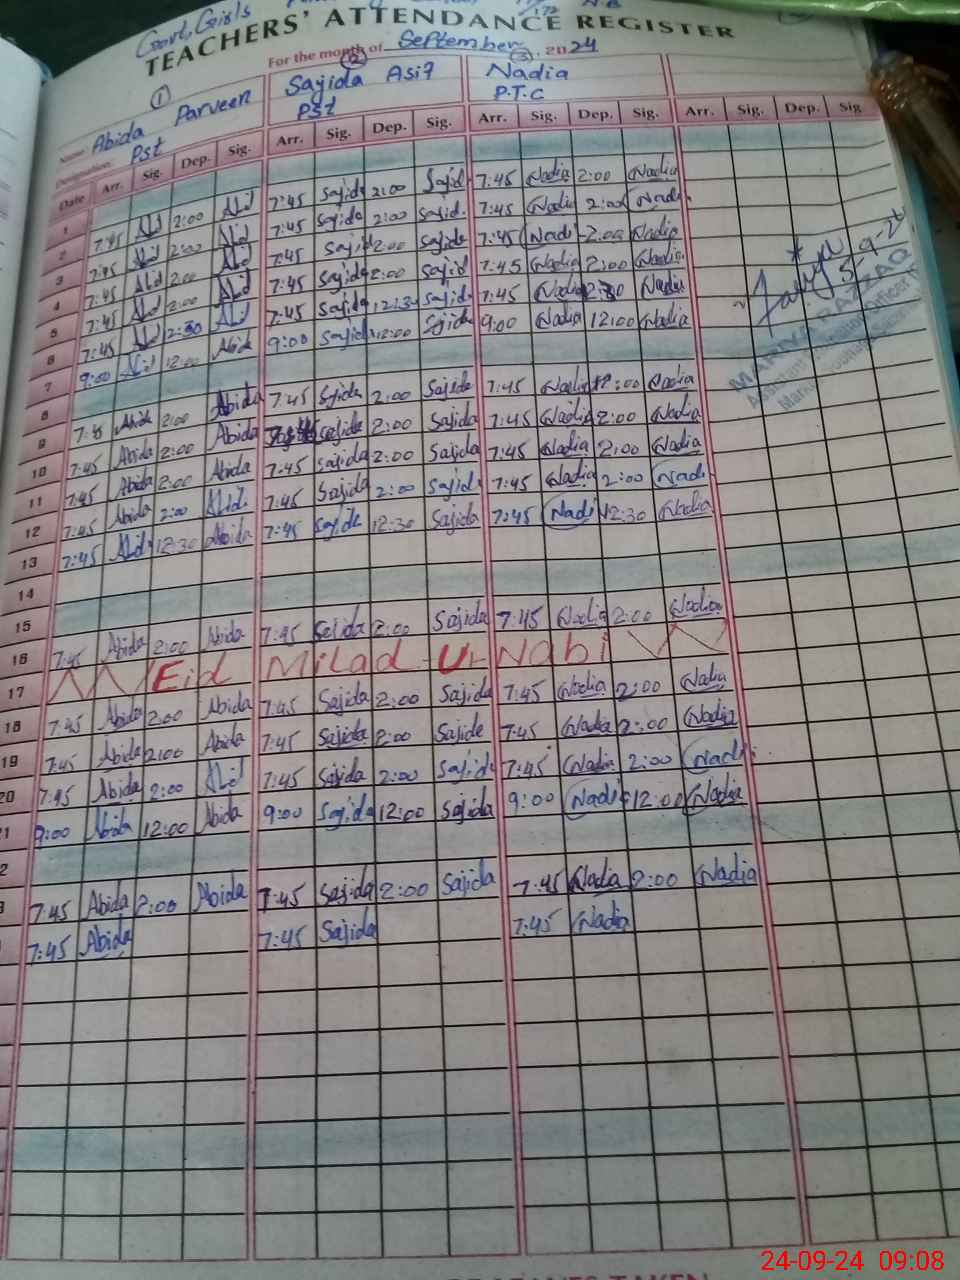 Govt, Girls
TEACHERS' ATTENDANCE REGISTER
For the month of September 2024
① ② ③
Name Abida Parveen Sajida Asif Nadia
Designation Pst Pst P.T.C
Date Arr. Sig. Dep. Sig. Arr. Sig. Dep. Sig. Arr. Sig. Dep. Sig. Arr. Sig. Dep. Sig
1
2 7:45 Abid 2:00 Abid 7:45 Sajid 2:00 Sajid 7:45 Nadia 2:00 Nadia
3 7:45 Abid 2:00 Abid 7:45 Sajida 2:00 Sajid 7:45 Nadia 2:00 Nadia
4 7:45 Abid 2:00 Abid 7:45 Sajid 2:00 Sajida 7:45 Nadi 2:00 Nadia
5 7:45 Abid 2:00 Abid 7:45 Sajida 2:00 Sajid 7:45 Nadia 2:00 Nadia 5-9-24
6 7:45 Abid 12:30 Abid 7:45 Sajida 12:30 Sajid 7:45 Nadia Nadia
7 9:00 Abid 12:00 Abida 9:00 Sajid 12:00 Sajida 9:00 Nadia 12:00 Nadia
8
9 7:45 Abida 2:00 Abida 7:45 Sajida 2:00 Sajida 7:45 Nadia 2:00 Nadia
10 7:45 Abida 2:00 Abida Sajida 2:00 Sajida 7:45 Nadia 2:00 Nadia
11 7:45 Abida 2:00 Abida 7:45 Sajida 2:00 Sajida 7:45 Nadia 2:00 Nadia
12 7:45 Abida 2:00 Abid 7:45 Sajida 2:00 Sajida 7:45 Nadia 2:00 Nadi
13 7:45 Abid 12:30 Abida 7:45 Sajida 12:30 Sajida 7:45 Nadi 12:30 Nadia
14
15
16 7:45 Abida 2:00 Abida 7:45 Sajida 2:00 Sajida 7:45 Nadia 2:00 Nadia
17 Eid Milad Ur Nabi
18 7:45 Abida 2:00 Abida 7:45 Sajida 2:00 Sajida 7:45 Nadia 2:00 Nadia
19 7:45 Abida 2:00 Abida 7:45 Sajida 2:00 Sajida 7:45 Nadia 2:00 Nadia
20 7:45 Abida 2:00 Abid 7:45 Sajida 2:00 Sajida 7:45 Nadia 2:00 Nadi
21 9:00 Abida 12:00 Abida 9:00 Sajida 12:00 Sajida 9:00 Nadi 12:00 Nadia
2
3 7:45 Abida 2:00 Abida 7:45 Sajida 2:00 Sajida 7:45 Nadia 2:00 Nadia
7:45 Abida 7:45 Sajida 7:45 Nadia
24-09-24 09:08